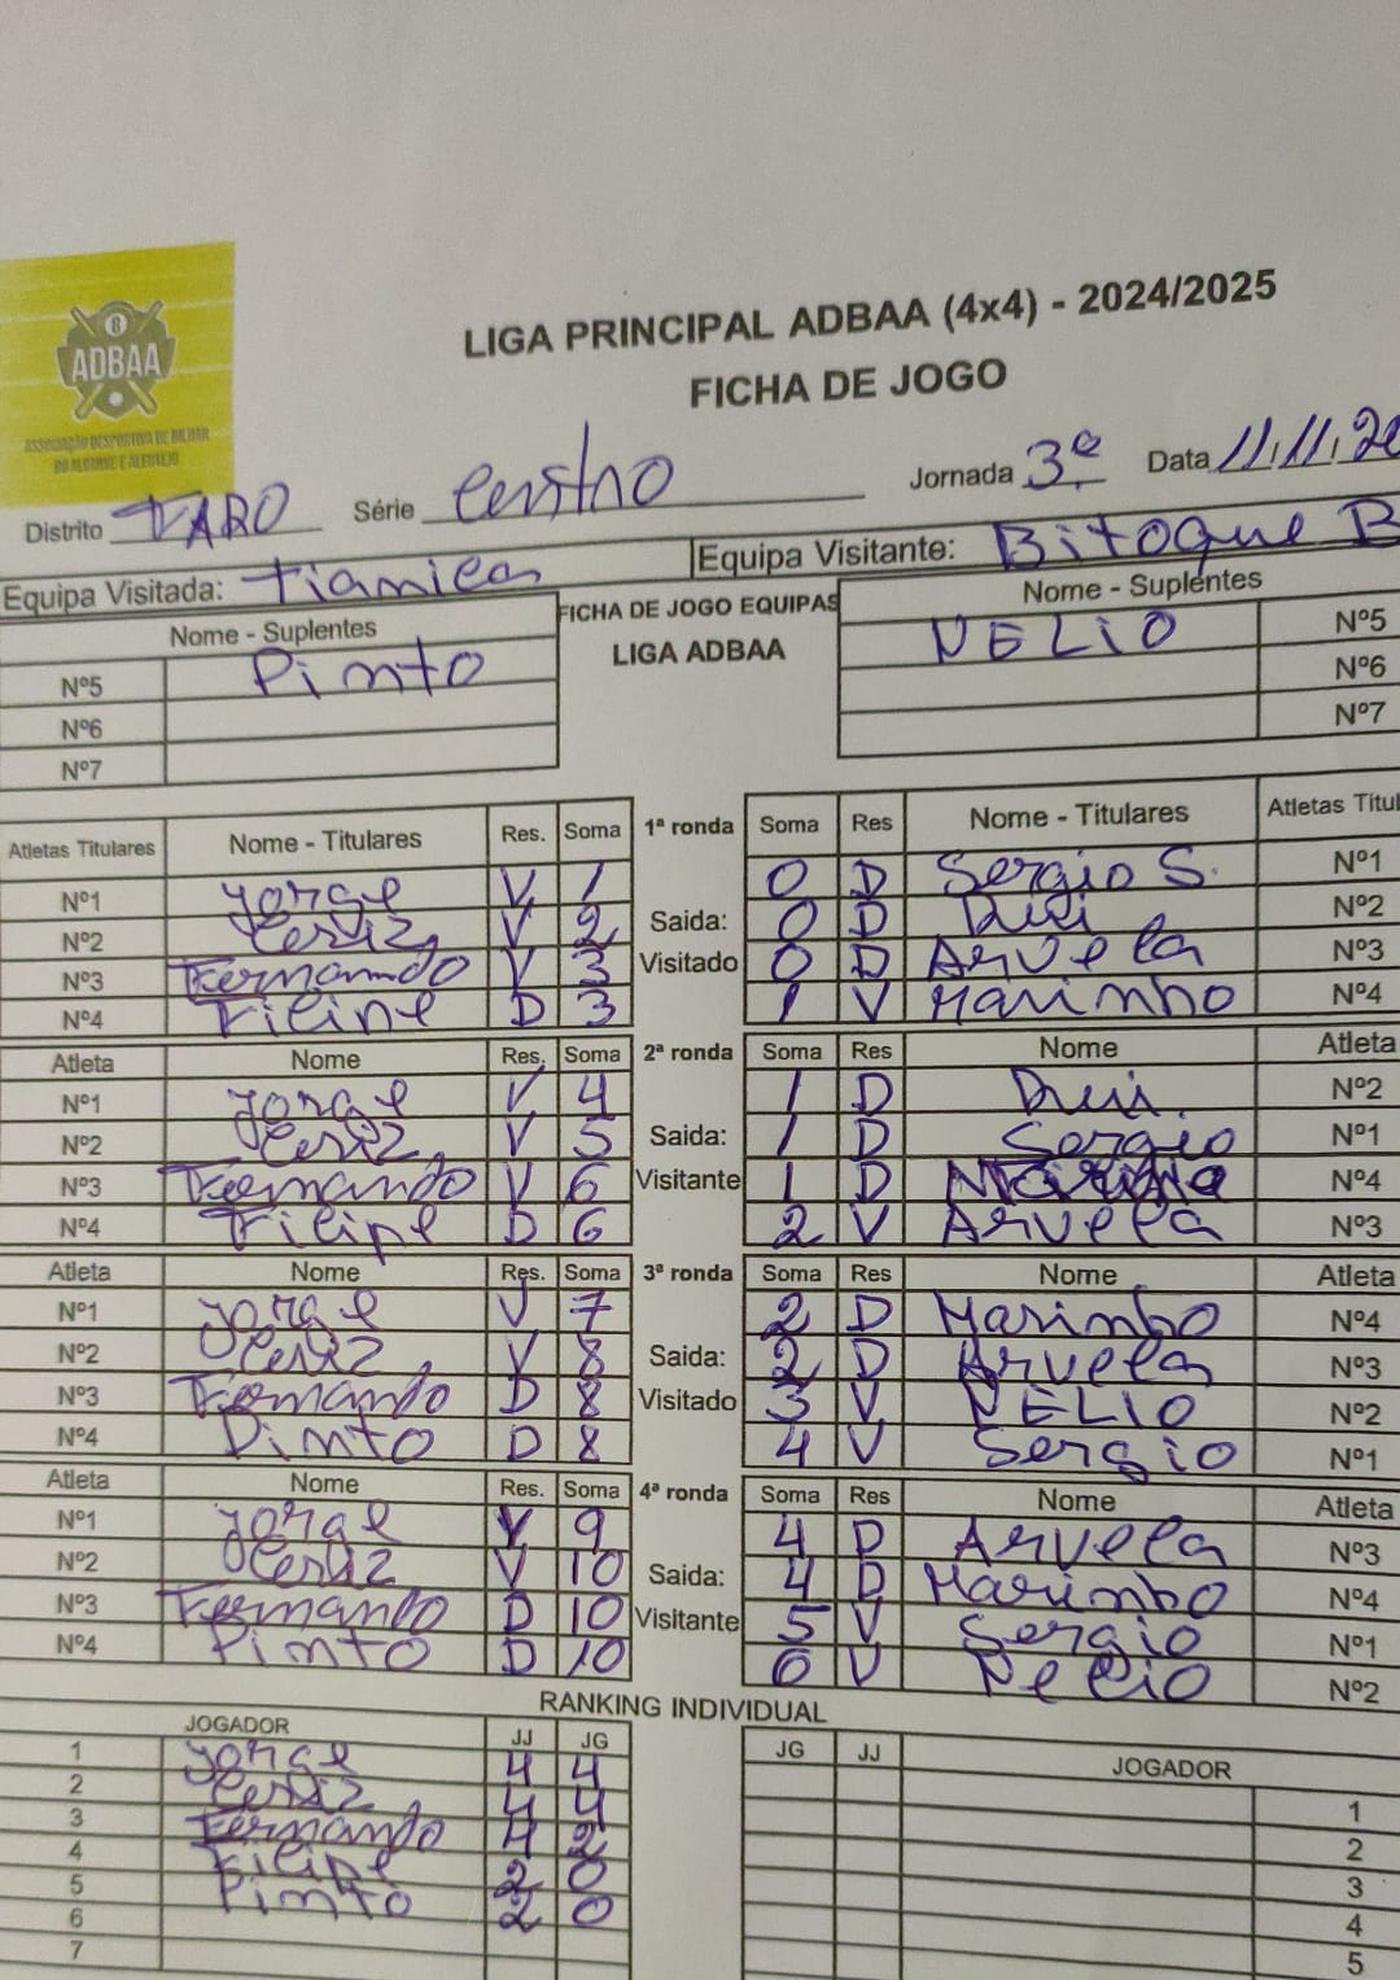 8
ADBAA
ASSOCIAÇÃO DESPORTIVA DE BILHAR
DO ALGARVE E ALENTEJO
LIGA PRINCIPAL ADBAA (4x4) - 2024/2025
FICHA DE JOGO
Distrito FARO Série Centro Jornada 3ª Data 11.11.20
Equipa Visitada: Tiamica Equipa Visitante: Bitoque B
Nome - Suplentes FICHA DE JOGO EQUIPAS Nome - Suplentes
LIGA ADBAA
Nº5 Pinto VELIO Nº5
Nº6 Nº6
Nº7 Nº7
Atletas Titulares Nome - Titulares Res. Soma 1ª ronda Soma Res Nome - Titulares Atletas Titul
Nº1 Jorge V 1 0 D Sergio S. Nº1
Nº2 V 2 Saida: 0 D Rui Nº2
Nº3 Fernando V 3 Visitado 0 D Arvela Nº3
Nº4 Filipe D 3 1 V Marinho Nº4
Atleta Nome Res. Soma 2ª ronda Soma Res Nome Atleta
Nº1 Jorge V 4 1 D Rui. Nº2
Nº2 V 5 Saida: 1 D Sergio Nº1
Nº3 Fernando V 6 Visitante 1 D Nº4
Nº4 Filipe D 6 2 V Arvela Nº3
Atleta Nome Res. Soma 3ª ronda Soma Res Nome Atleta
Nº1 Jorge V 7 2 D Marinho Nº4
Nº2 V 8 Saida: 2 D Arvela Nº3
Nº3 Fernando D 8 Visitado 3 V VELIO Nº2
Nº4 Pinto D 8 4 V Sergio Nº1
Atleta Nome Res. Soma 4ª ronda Soma Res Nome Atleta
Nº1 Jorge V 9 4 D Arvela Nº3
Nº2 V 10 Saida: 4 D Marinho Nº4
Nº3 Fernando D 10 Visitante 5 V Sergio Nº1
Nº4 Pinto D 10 6 V Velio Nº2
RANKING INDIVIDUAL
JOGADOR JJ JG JG JJ JOGADOR
1 Jorge 4 4 1
2 4 4 2
3 Fernando 4 2 3
4 Filipe 2 0 4
5 Pinto 2 0 5
6
7